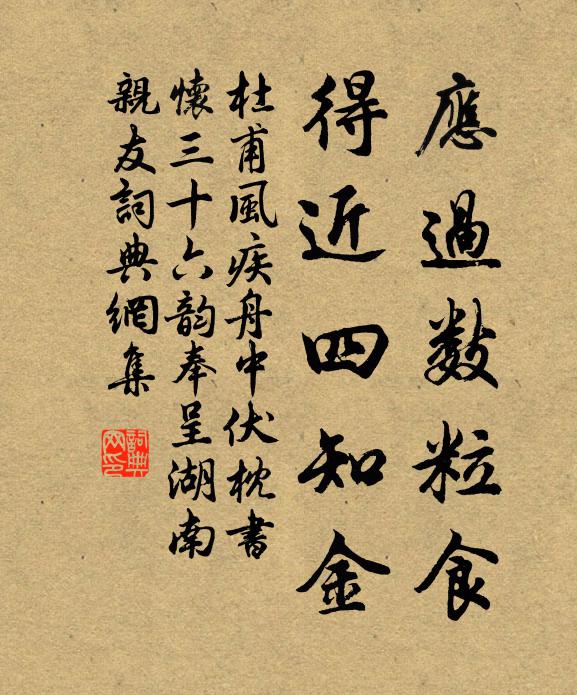 應過數粒食
得近四知金
杜甫風疾舟中伏枕書
懷三十六韵奉呈湖南
親友詞典網集
詞典
网印